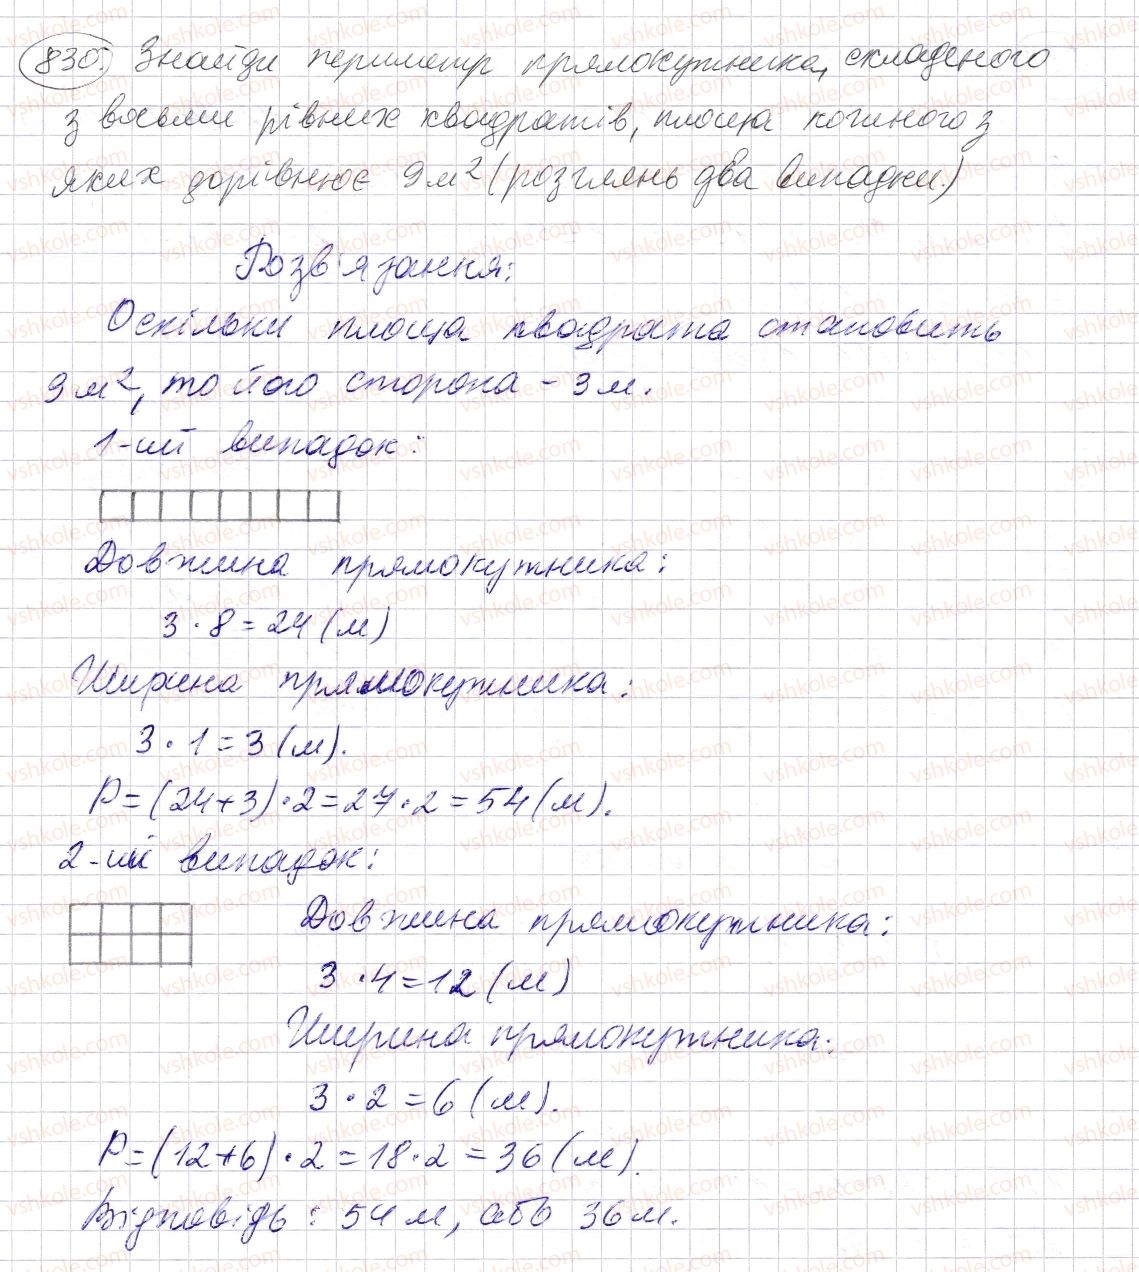 830. Знайди периметр прямокутника, складеного
з восьми рівних квадратів, площа кожного з
яких дорівнює 9 м² (розглянь два випадки.)
Розв'язання:
Оскільки площа квадрата становить
9 м², то його сторона - 3 м.
1-ий випадок:
Довжина прямокутника:
3 · 8 = 24 (м)
Ширина прямокутника:
3 · 1 = 3 (м).
P = (24 + 3) · 2 = 27 · 2 = 54 (м).
2-ий випадок:
Довжина прямокутника:
3 · 4 = 12 (м)
Ширина прямокутника:
3 · 2 = 6 (м).
P = (12 + 6) · 2 = 18 · 2 = 36 (м).
Відповідь: 54 м, або 36 м.
vshkole.com